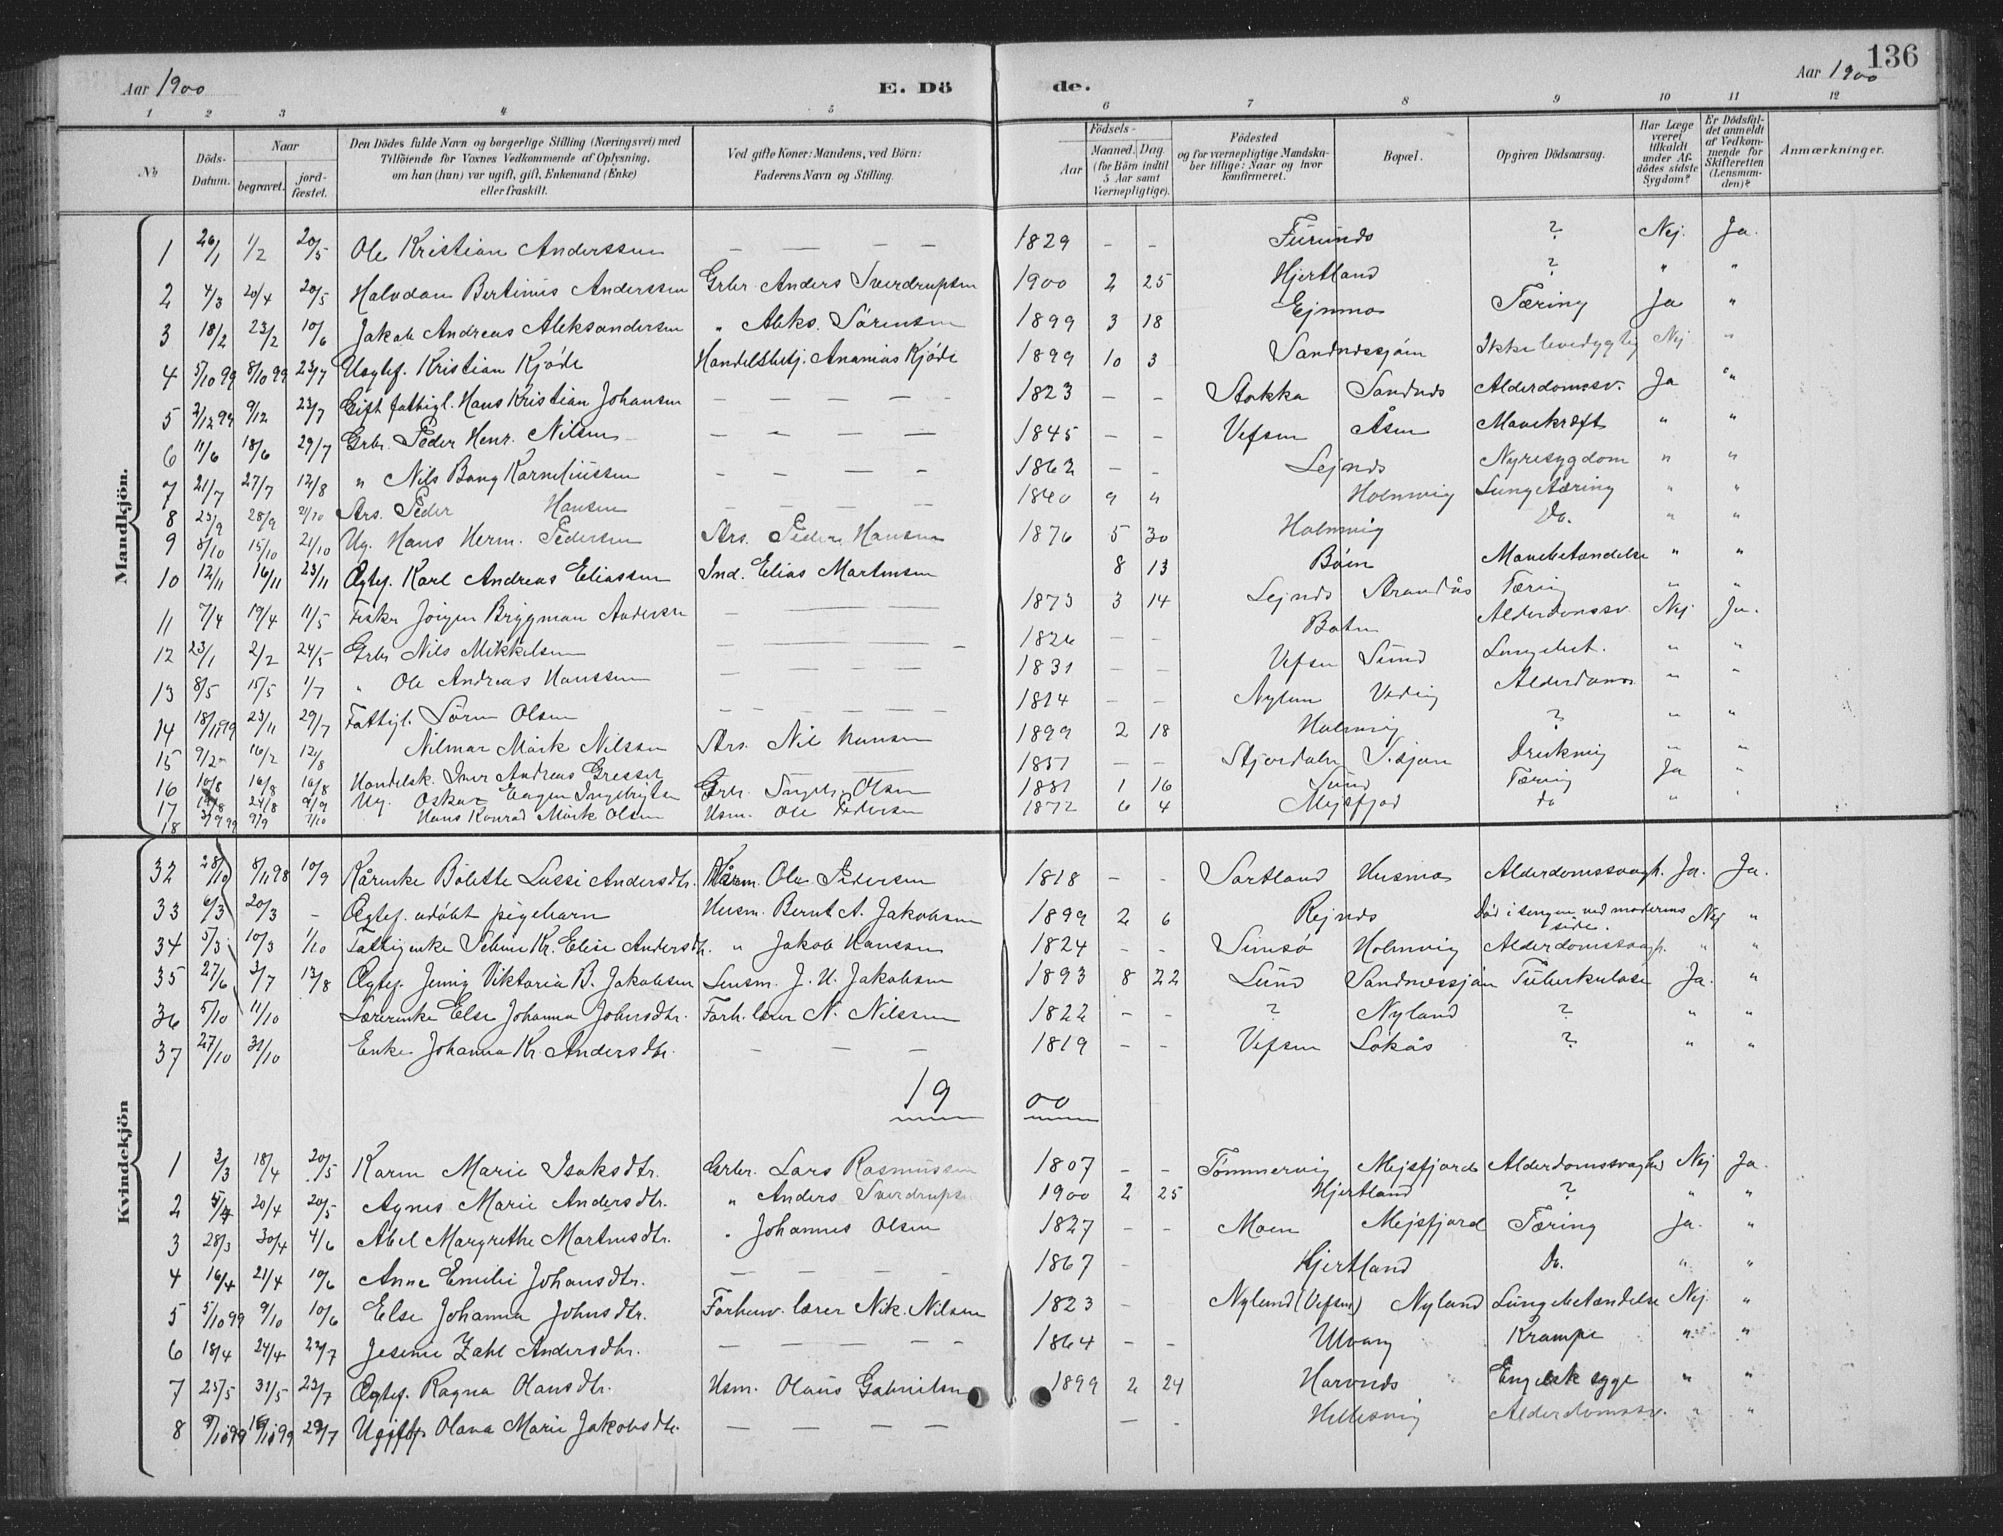 136
Aar 1900 E. Döde. Aar 1900
1 2 3 4 5 6 7 8 9 10 11 12
No Döds-Datum. Naar begravet. jordfæstet. Den Dödes fulde Navn og borgerlige Stilling (Næringsvei) med Tilföiende for Voxnes Vedkommende af Oplysning, om han (hun) var ugift, gift, Enkemand (Enke) eller fraskilt. Ved gifte Koner: Mandens, ved Börn: Faderens Navn og Stilling. Födsels- Aar Maaned. Dag. (for Börn indtil 5 Aar samt Værnepligtige). Födested og for værnepligtige Mandskaber tillige: Naar og hvor konfirmeret. Bopæl. Opgiven Dödsaarsag. Har Læge været tilkaldt under Afdödes sidste Sygdom? Er Dödsfaldet anmeldt af Vedkommende for Skifteretten (Lensmanden)? Anmærkninger.
Mandkjön.
1 26/1 1/2 20/5 Ole Kristian Anderssen — — — — 1829 - - Furunds ? Nej. Ja.
2 4/3 20/4 20/5 Halvdan Bertinus Anderssen Grbr. Anders Sverdrupsen 1900 2 25 Hjertland ? " "
3 18/2 23/2 10/6 Jakob Andreas Aleksandersen " Aleks. Sörensen 1899 3 18 Ejnmo Tæring Ja "
4 5/10 99 8/10 99 23/7 Uegtef. Kristian Kjöde Handelsbetj. Ananias Kjöde 1899 10 3 Sandnessjöen Ikke levedygtig Nej "
5 2/12 99 9/12 23/7 Gift fattigl. Hans Kristian Johansen — — — — 1823 - - Stokka Sandnes Alderdomssv. Ja "
6 11/6 18/6 29/7 Grbr. Peder Henr. Nilsen — — — — 1845 - - Vefsen Åsen Mavekræft " "
7 21/7 27/7 12/8 " Nils Bang Korneliussen — — — — 1862 - - Lejnes Nyresygdom " "
8 23/9 28/9 21/10 Ars. Peder Hansen — — — — 1840 9 " Holmvig Lungetæring " "
9 8/10 15/10 21/10 Ug. Hans Herm. Pedersen Ars. Peder Hansen 1876 5 30 Holmvig Do. " "
10 12/11 16/11 23/11 Ægtef. Karl Andreas Eliassen Ind. Elias Martinsen 8 13 Böen Mavebetændelse " "
11 7/4 19/4 11/5 Fisker Jörgen Bryggman Andersen — — — 1873 3 14 Lejnes Strandås Tæring " "
12 23/1 2/2 24/5 Grbr Nils Mikkelsen — — — — 1826 - - Botn Alderdomssv. Nej Ja.
13 8/5 15/5 1/7 " Ole Andreas Hanssen — — — — 1831 - - Vefsn Sund Lungebet. " "
14 18/11 99 23/11 29/7 Fattigl. Sören Olsen — — — — 1814 - - Nylem Alderdoms " "
15 9/2 16/2 12/8 Nilmar Mörk Nilsen Ars. Nil Hansen 1899 2 18 Holmvig ? " "
16 10/8 16/8 16/8 Handelsk. Iver Andreas Gresset — — — — 1851 - - Stjördalen Drukning " "
17 19/8 24/8 9/9 Ug. Oskar Eugen Ingebrigtsen Grbr. Ingebr. Olsen 1881 1 16 Sund Tæring Ja "
18 3/9 99 9/9 7/10 Hans Konrad Mörk Olsen Husm. Ole Pedersen 1872 6 4 Mejsfjord do " "
Kvindekjön
32 28/10 8/11 98 10/9 Kårenke Bolette Lussi Andersdtr. Kårm. Ole Pedersen 1818 - - Sortland Husmo Alderdomssvagh. Ja. Ja.
33 6/3 20/3 - Ægtef. udöbt pigebarn Husm. Bernt A. Jakobsen 1899 2 6 Rejnes Död i sengen ved moderens side. Nej "
34 5/3 10/3 1/10 Fattigenke Seline Kr. Elise Andersdtr. " Jakob Hanssen 1824 - - Simsö Holmvig Alderdomssvagh. " "
35 27/6 3/7 13/8 Ægtef. Jenny Viktoria B. Jakobsen Lensm. J. U. Jakobsen 1893 8 22 Lund Sandnessjön Tuberkulose Ja. "
36 5/10 11/10 Lærerenke Else Johanna Johnsdtr. Forh. lærer N. Nilssen 1822 - - ? Nyland ? " "
37 27/10 31/10 Enke Johanna Kr. Andersdtr. — — — 1819 - - Vefsen Sökås ? " "
1900
1 3/3 18/4 20/5 Karen Marie Isaksdtr. Grbr. Lars Rasmussen 1807 - - Tömmervig Mejsfjord Alderdomssvaghed Nej Ja.
2 4/4 20/4 20/5 Agnes Marie Andersdtr. " Anders Sverdrupsen 1900 2 25 Hjertland ? " "
3 28/3 30/4 4/6 Abel Margrethe Martinsdtr. " Johannes Olsen 1827 - - Moen Mejsfjord Tæring Ja. "
4 16/4 21/4 10/6 Anne Emilie Johansdtr. — — — — 1867 - Hjertland Do. " "
5 5/10 99 9/10 10/6 Else Johanna Johnsdtr. Forhenv. lærer Nik. Nilsen 1823 - Nyland (Vefsen) Nyland Lungebetændelse Nej. "
6 18/4 24/4 22/7 Jesine Zahl Andersdtr. — — — — 1864 - - Ulvang Krampe " "
7 25/5 31/5 23/7 Ægtef. Ragna Olausdtr. Husm. Olaus Gabrielsen 1899 2 24 Harvnes Engelsk syge " "
8 9/10 99 16/10 99 29/7 Ugift Olava Marie Jakobsdtr. — — — - - Hellesvig Alderdomssv. " "